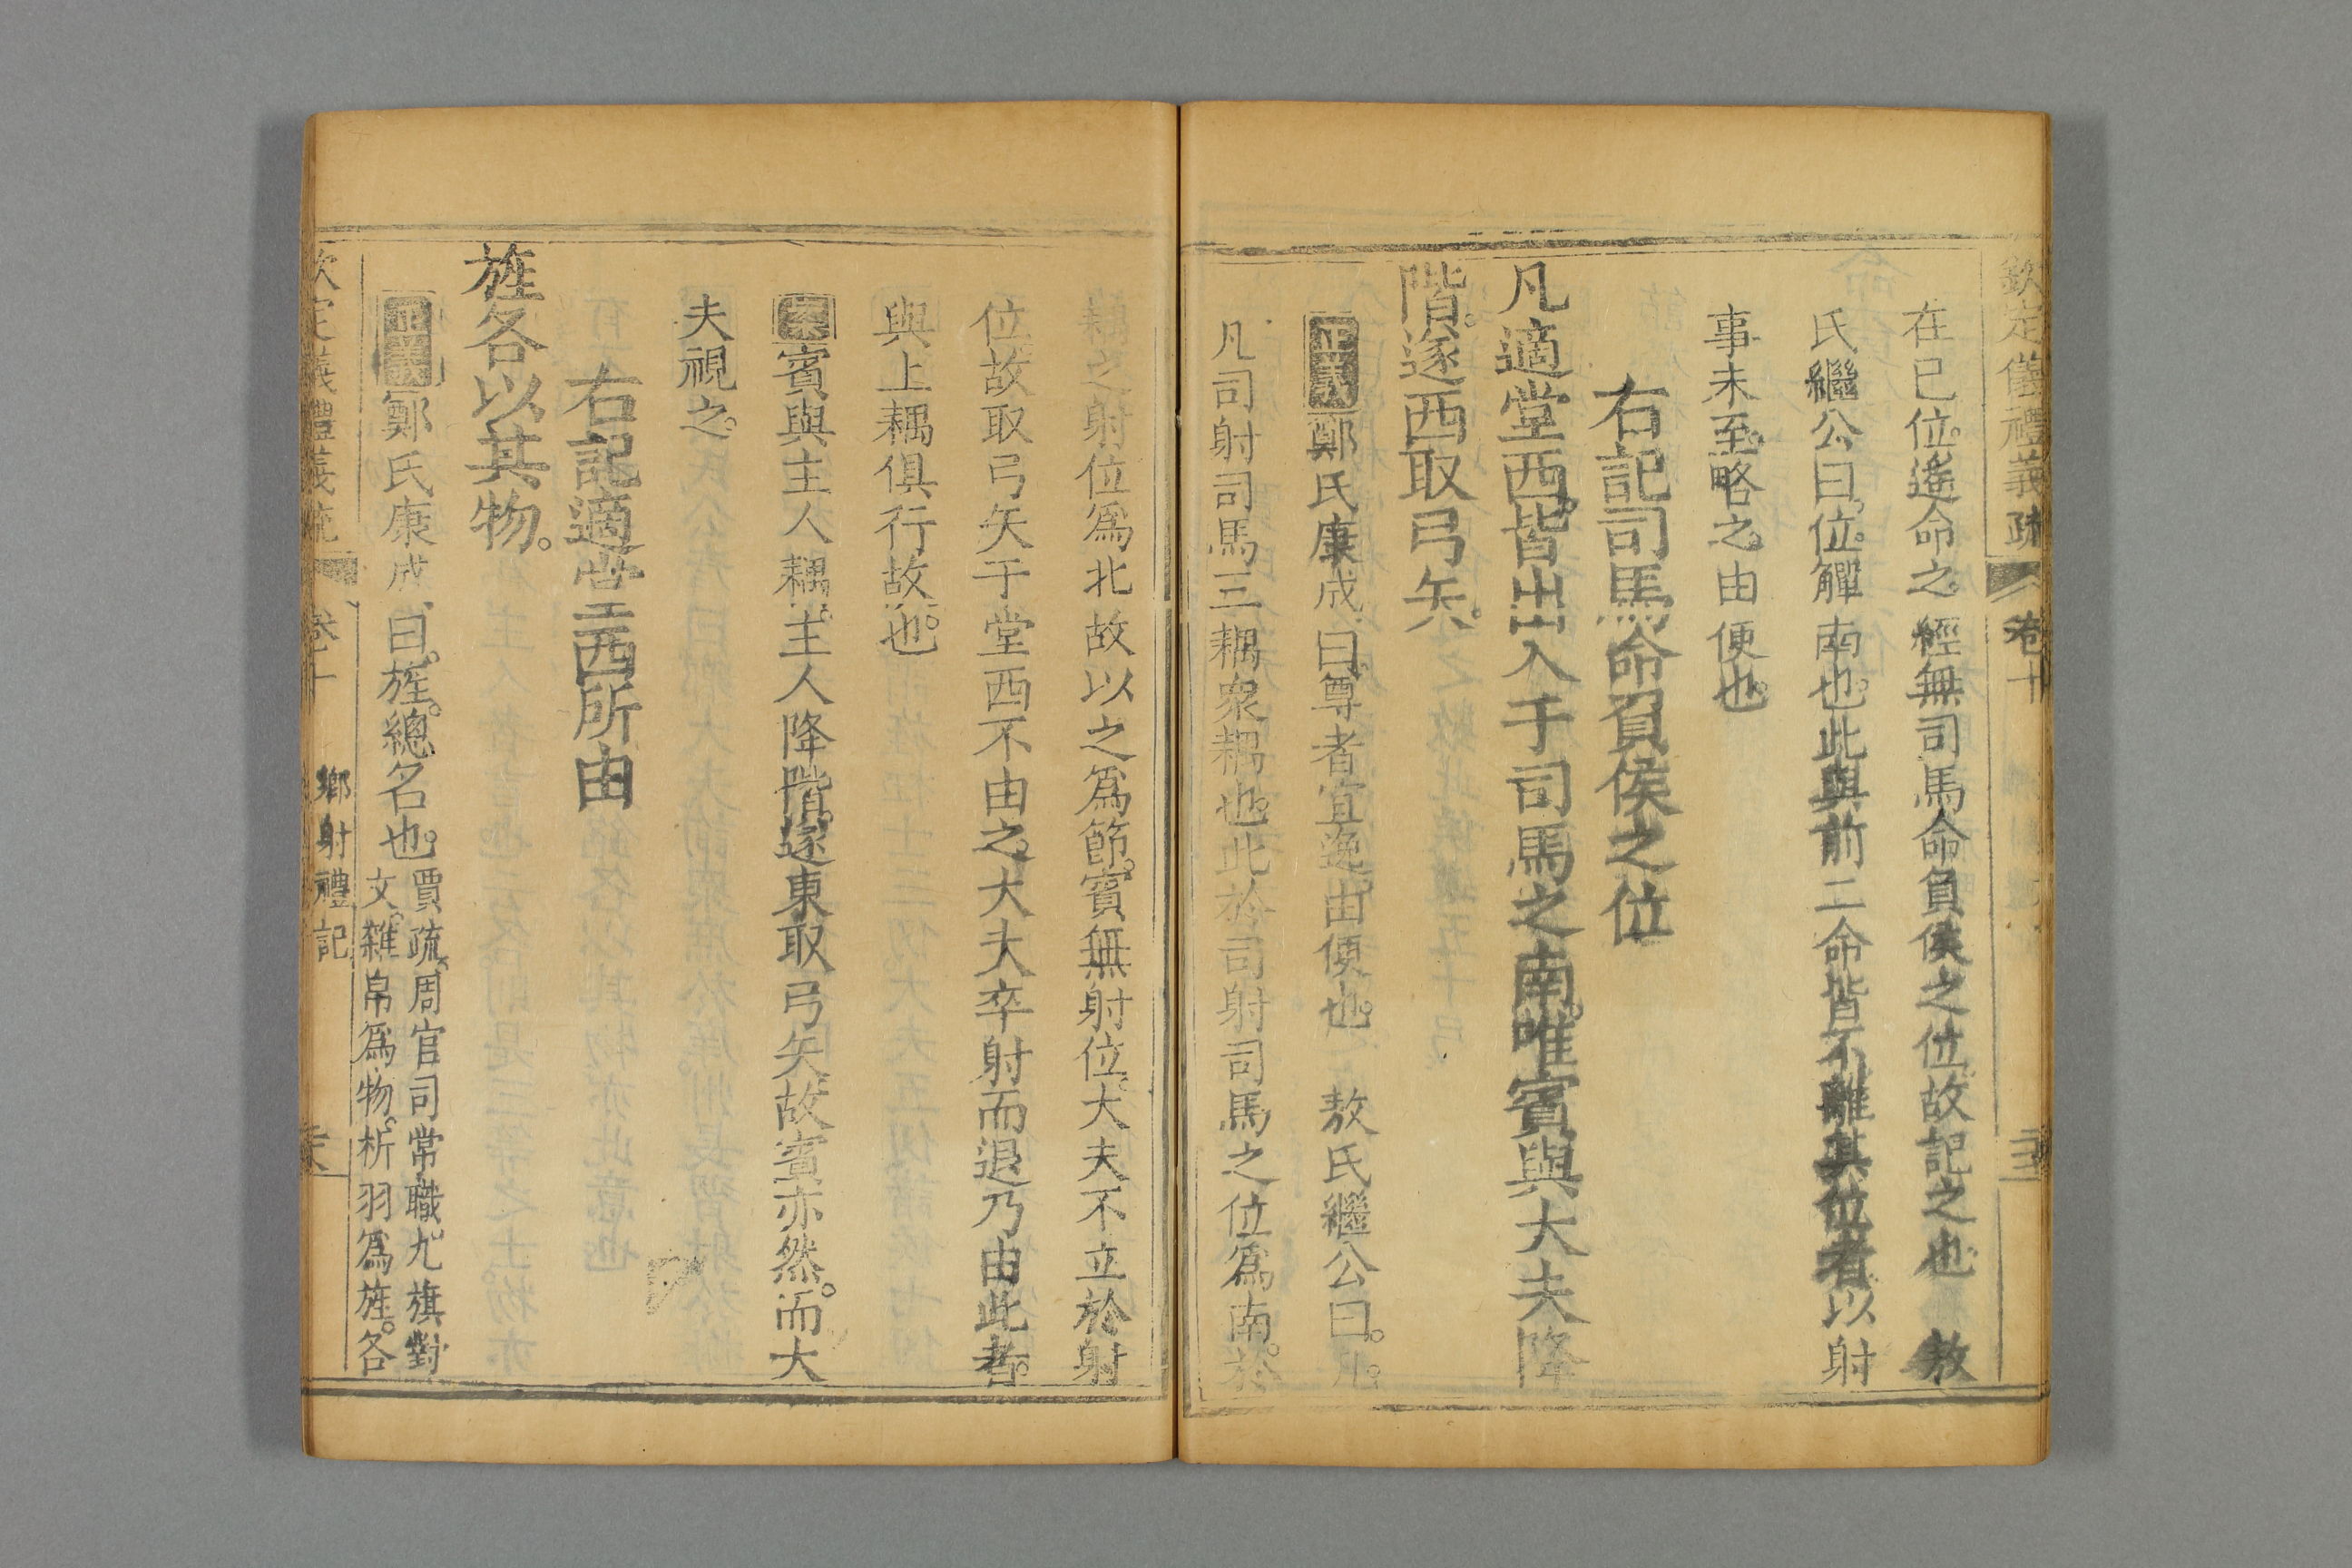 欽定儀禮義疏 卷十
在已位。遙命之 經無司馬命負侯之位。故記之也。 敖
氏繼公曰。位。觶南也。此與前二命皆不離其位者以射
事未至。略之。由便也。
右記司馬命負侯之位
凡適堂西。皆出入于司馬之南。唯賓與大夫降
階。遂西取弓矢。
正義 鄭氏康成曰。尊者宜逸。由便也。 敖氏繼公曰。凡。
凡司射司馬三耦衆耦也。此於司射司馬之位爲南。於
耦之射位爲北故以之爲節。賓無射位。大夫不立於射
位故取弓矢于堂西不由之。大夫卒射而退乃由此者。
與上耦俱行故也。
案 賓與主人耦。主人降階。遂東取弓矢故賓亦然。而大
夫視之。
右記適堂西所由
旌各以其物。
正義 鄭氏康成曰。旌。總名也。賈疏。周官司常職。九旗對
文。雜帛爲物。析羽爲旌。各
欽定儀禮義疏 卷十 鄉射禮記